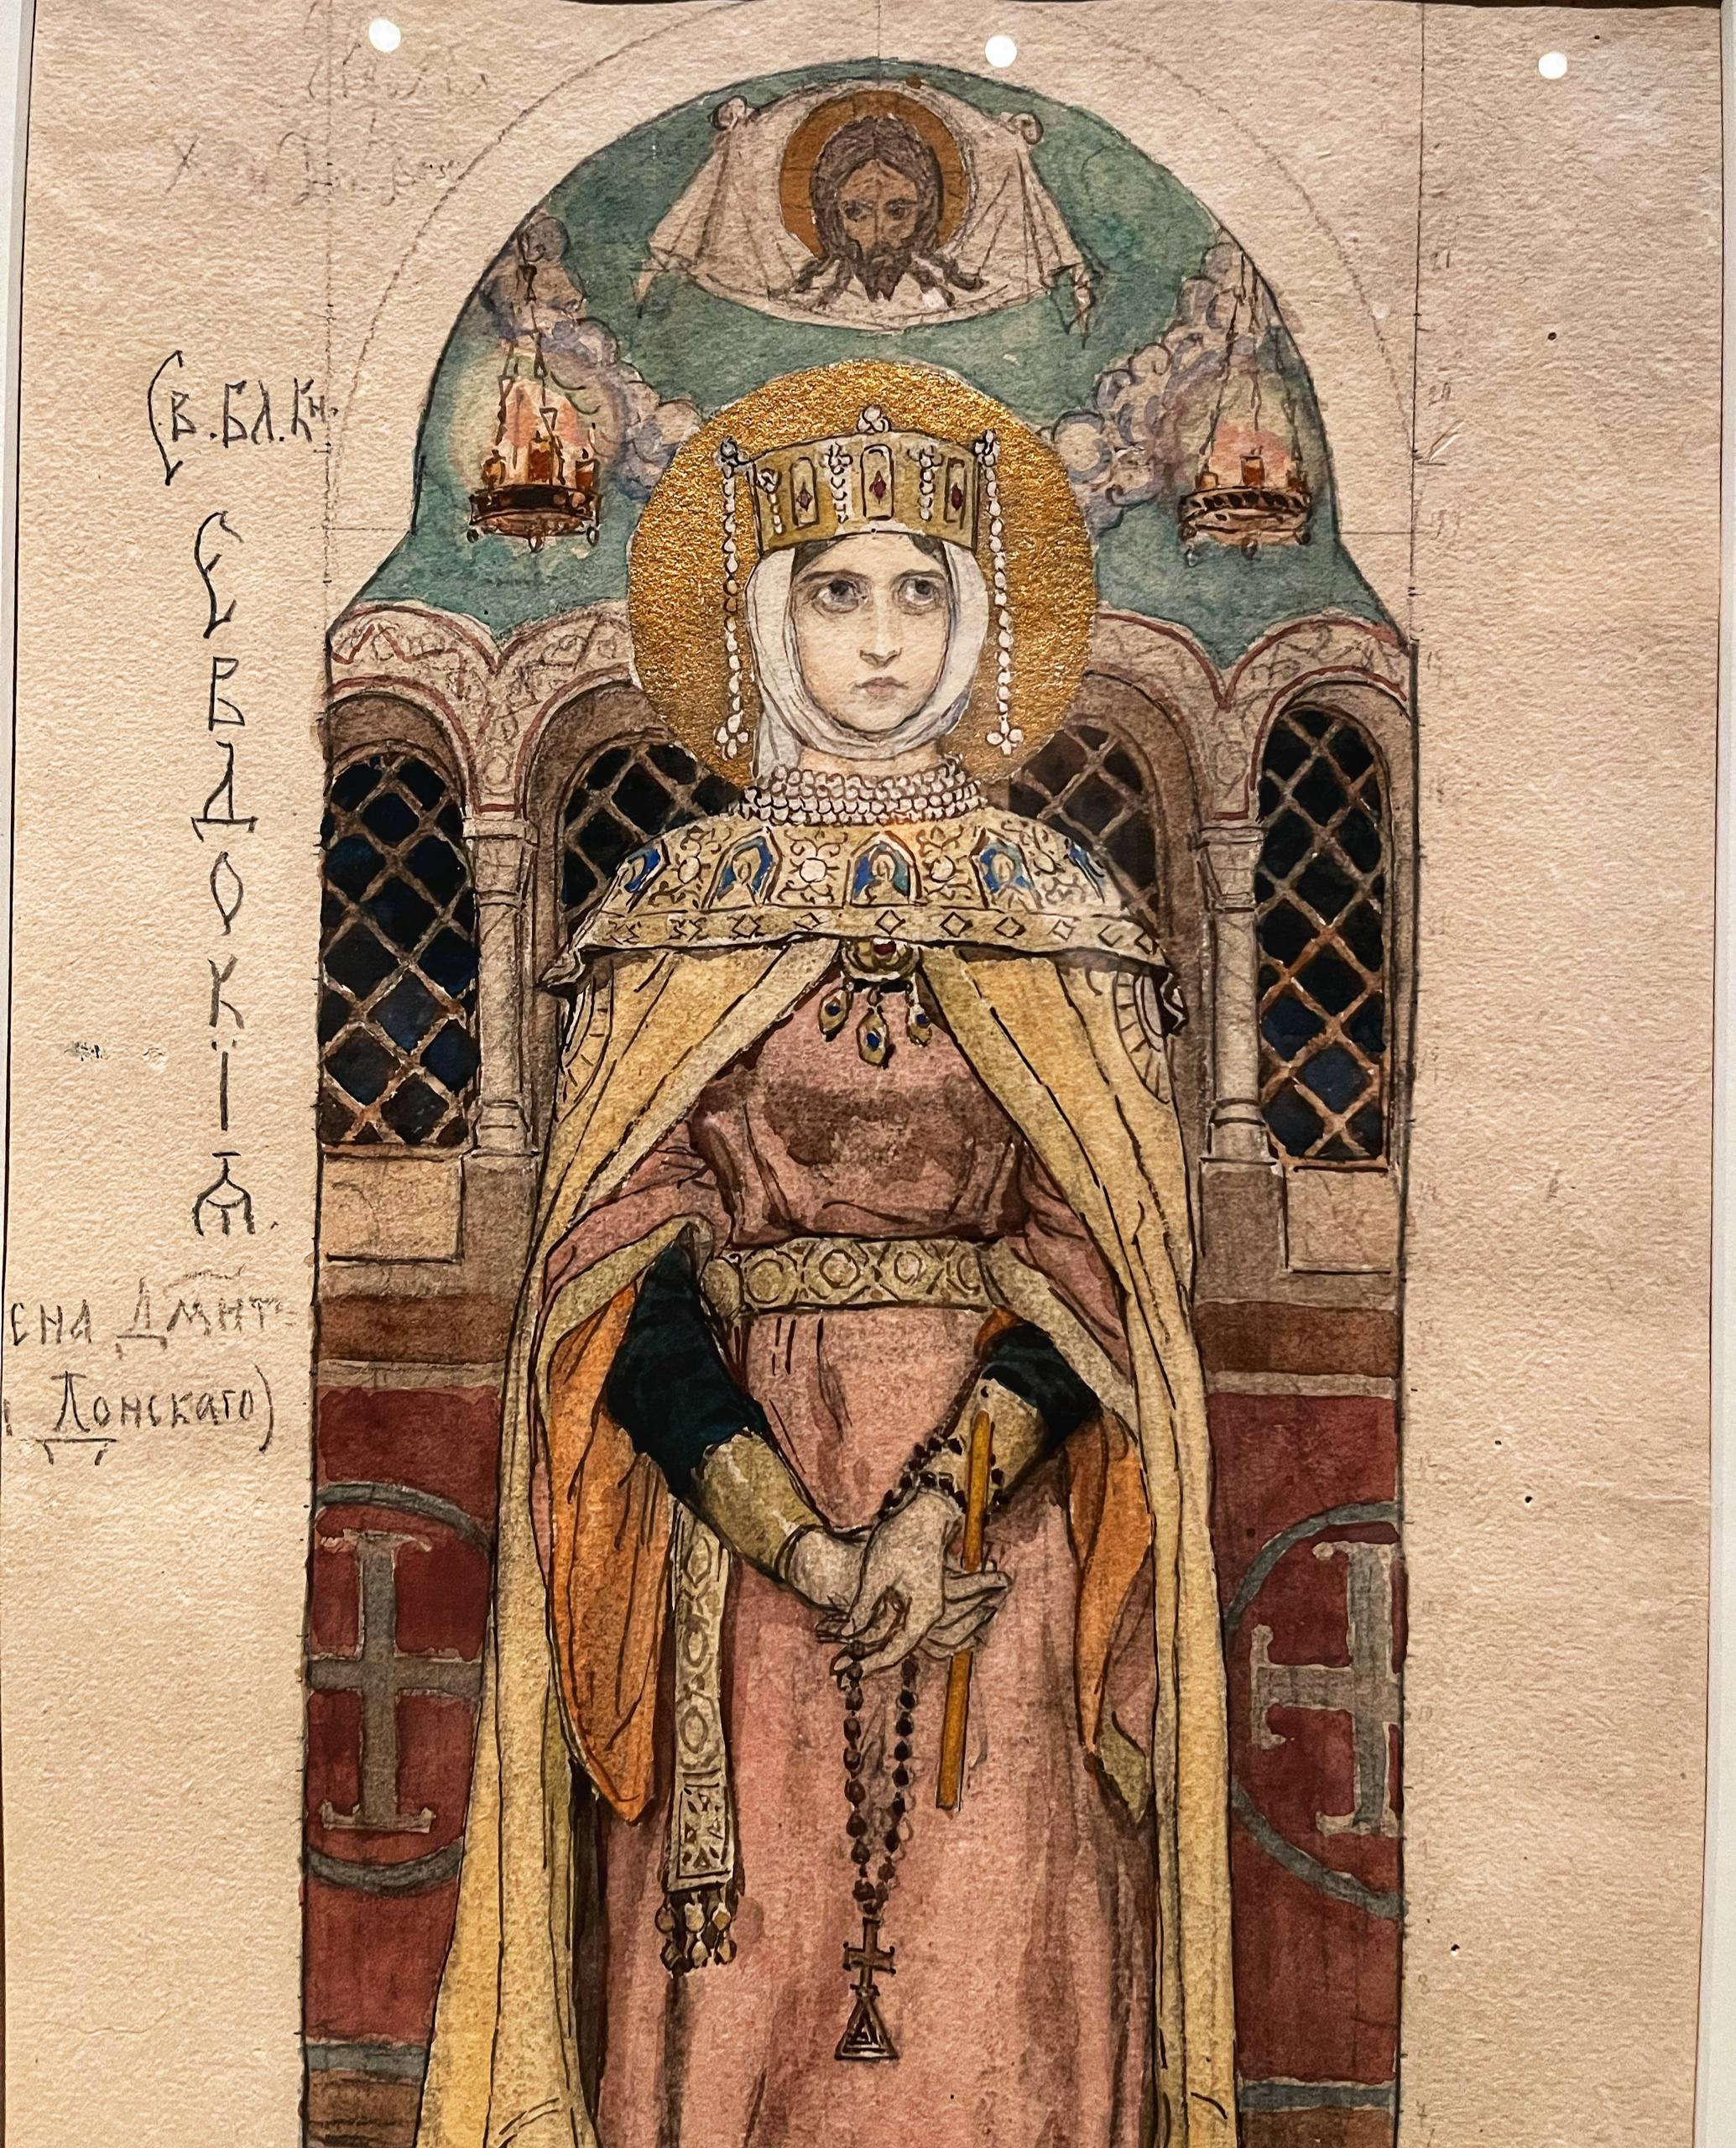 Св. Бл. Кн.
ЕВДОКІѦ.
ена Дмит-
Донскаго)